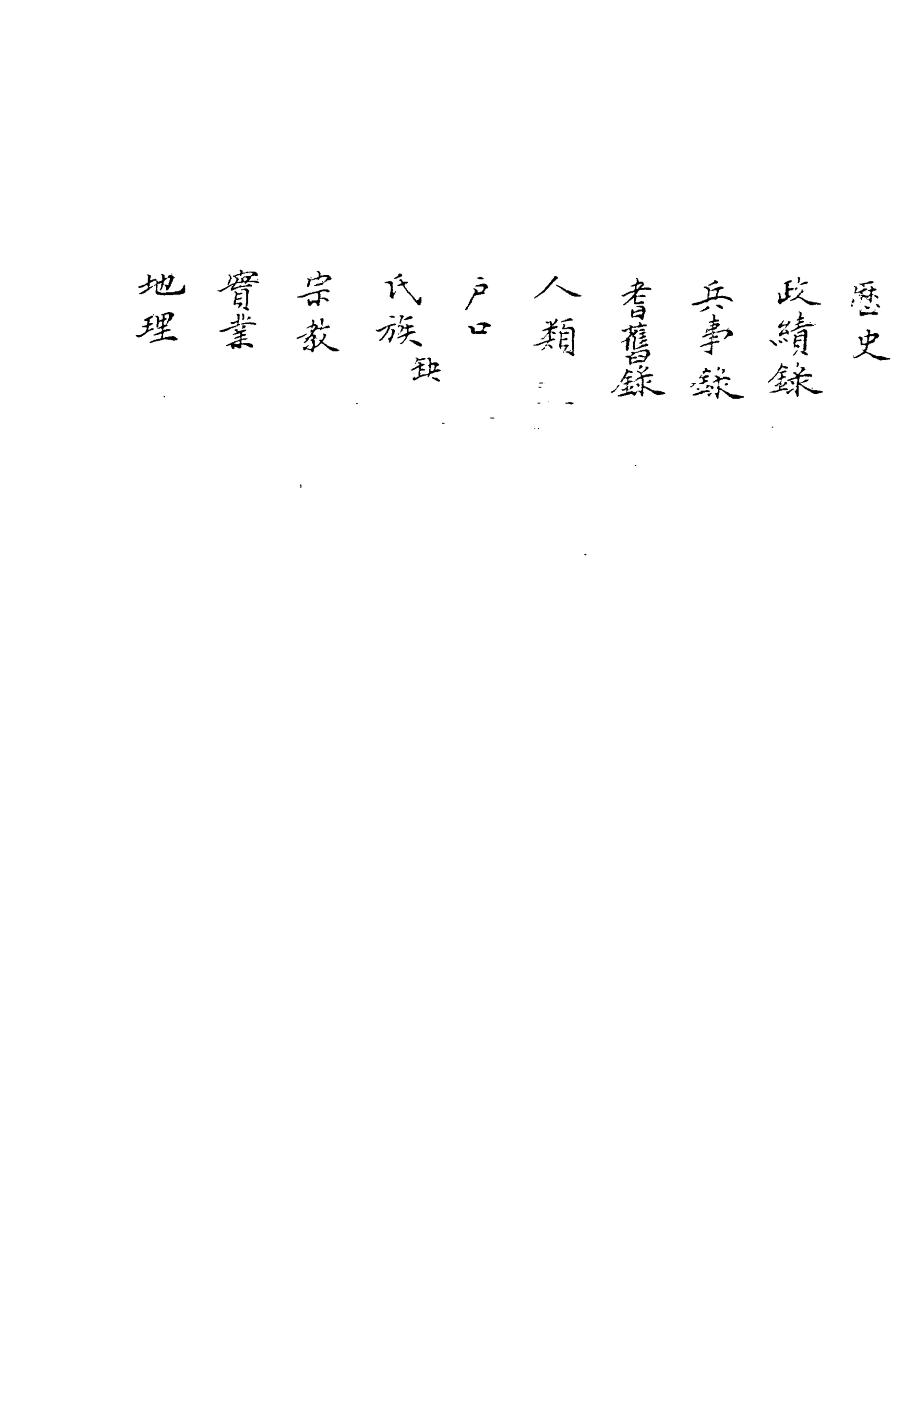 歷史
政績錄
兵事錄
耆舊錄
人類
户口
氏族 缺
宗教
實業
地理